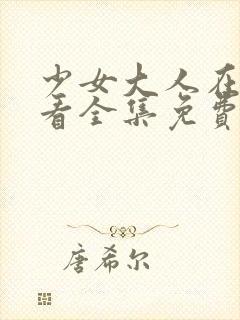 少女大人在
看全集免费
唐希尔